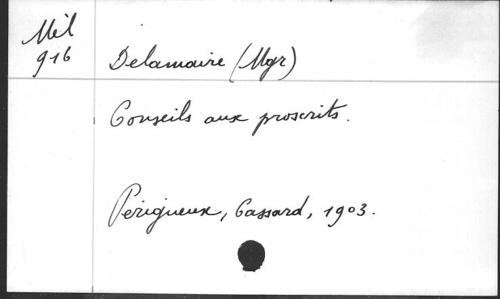 Mél
916
Delamaire (Mgr)
Conseils aux proscrits.
Périgueux, Cassard, 1903.